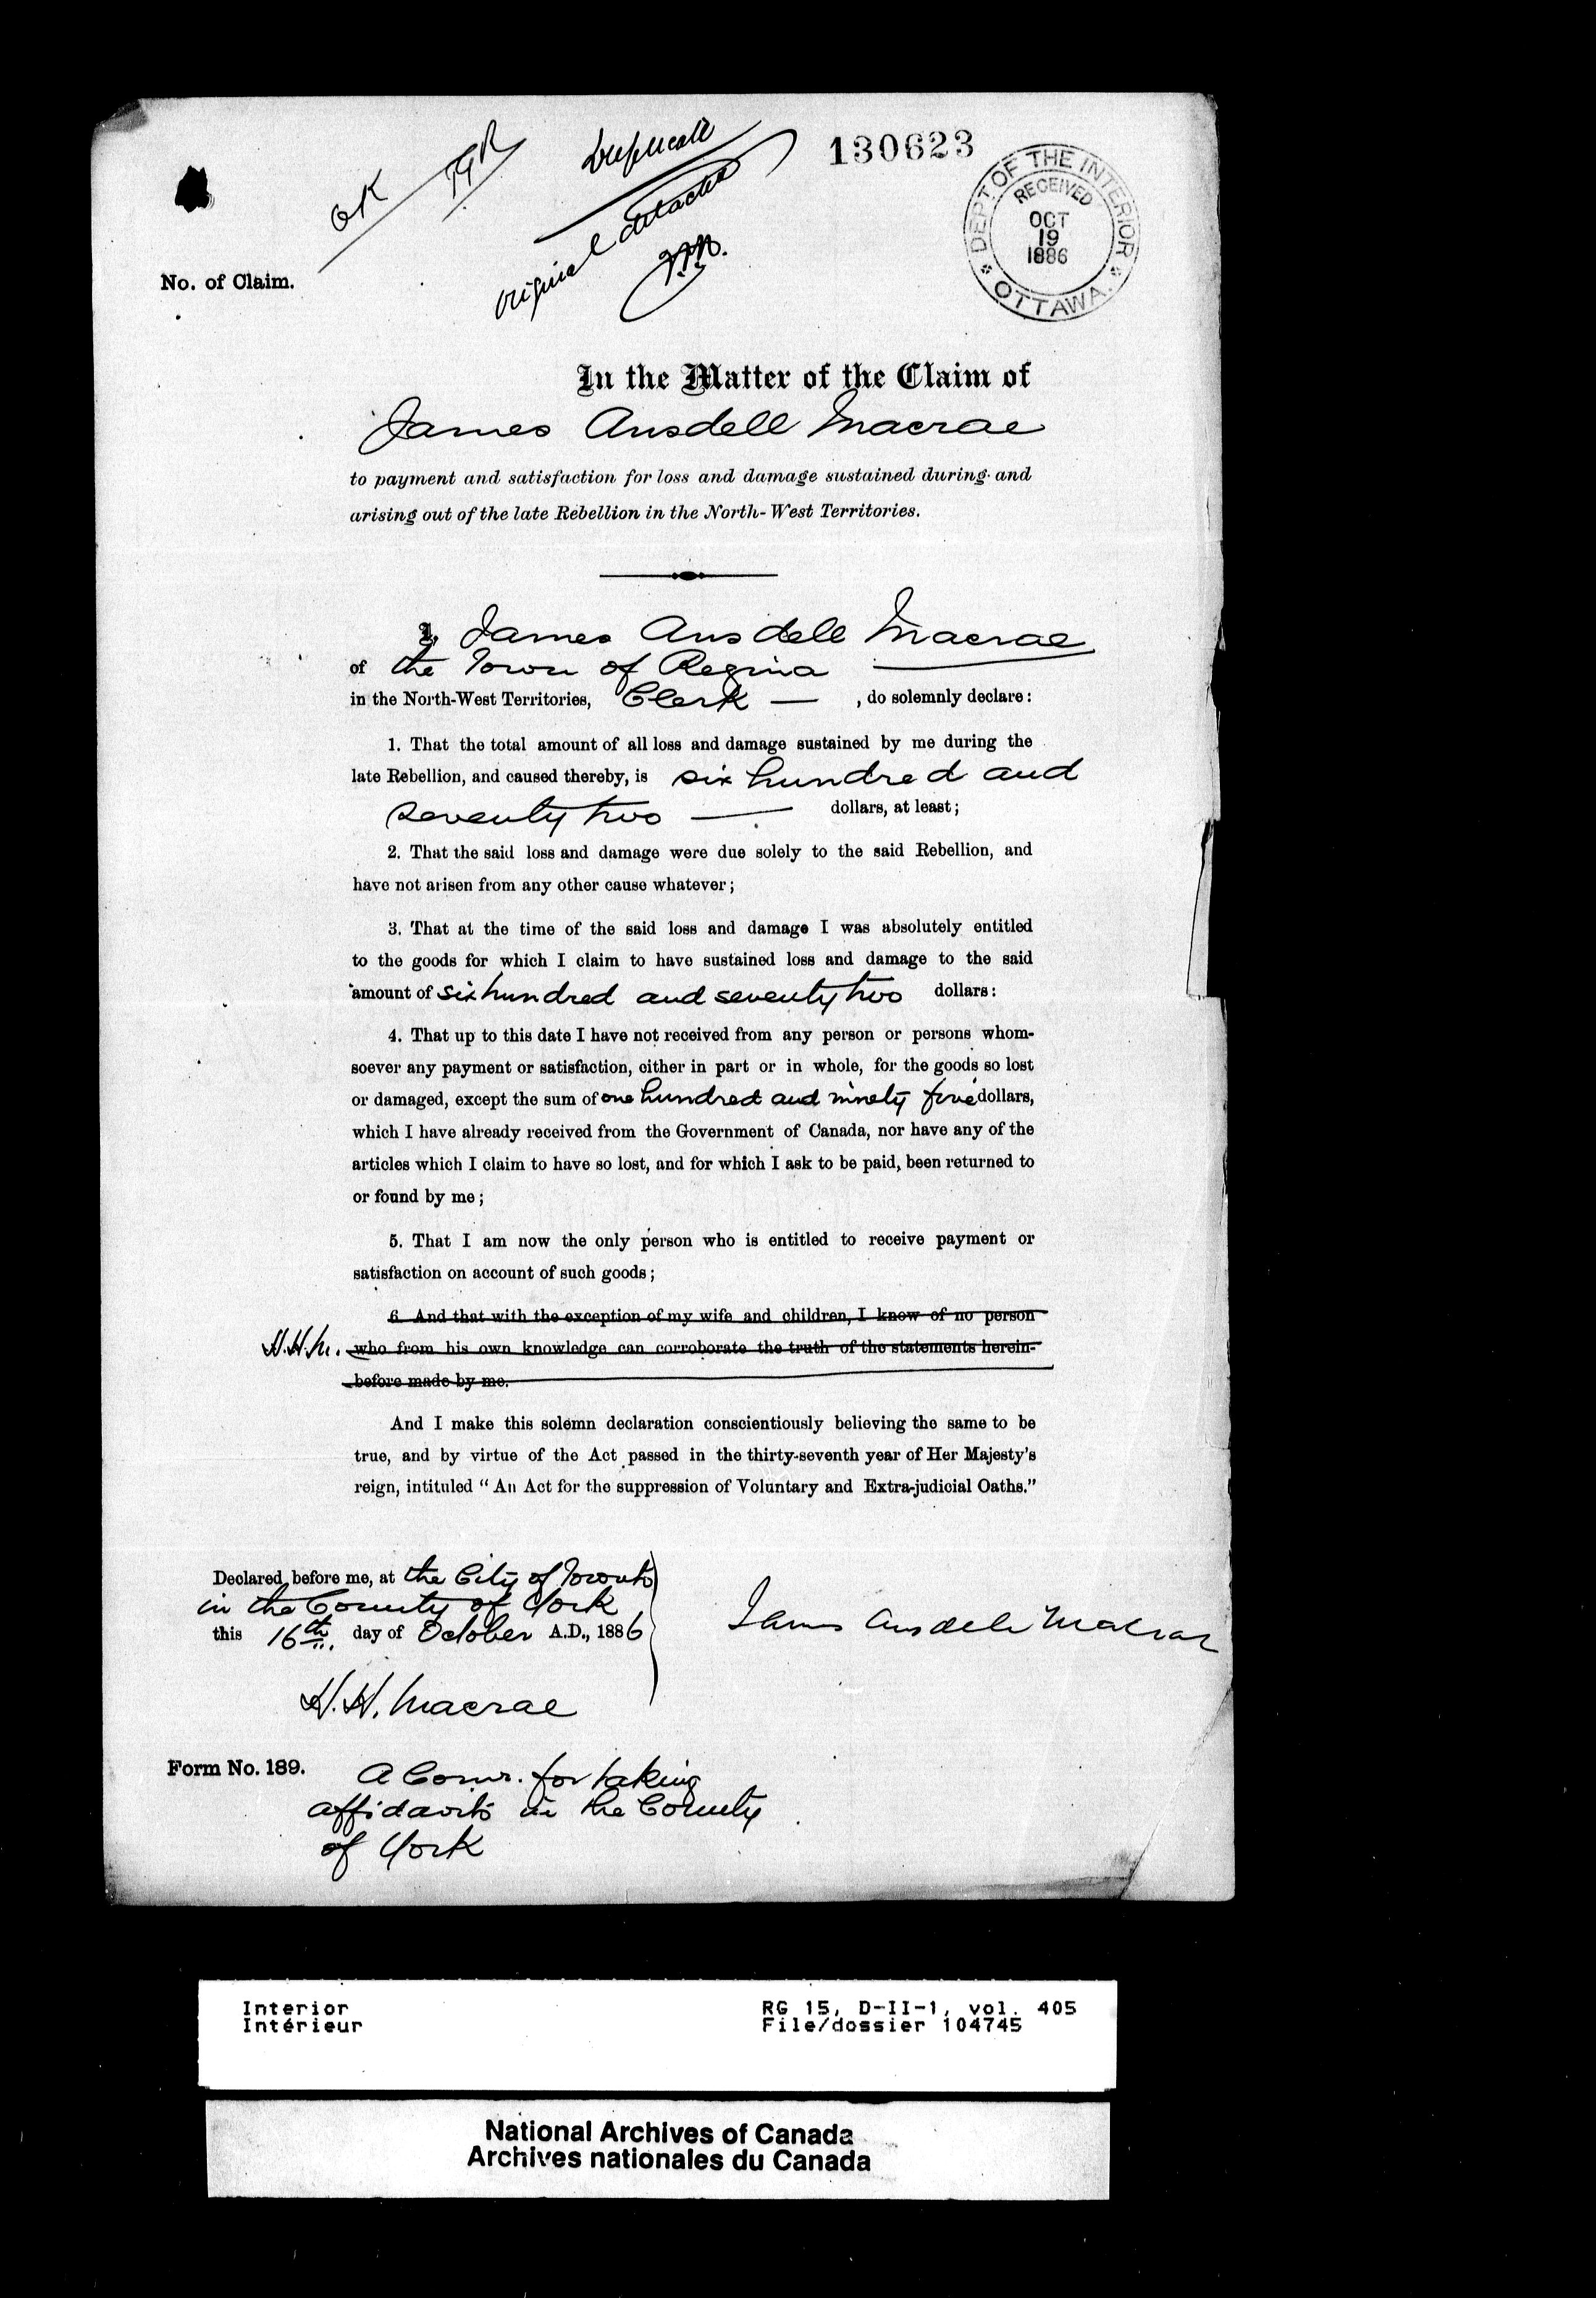 OK
Duplicate
original detached
130623
DEPT OF THE INTERIOR
RECEIVED
OCT
19
1886
OTTAWA.
No. of Claim.
In the Matter of the Claim of
James Ansdell Macrae
to payment and satisfaction for loss and damage sustained during and
arising out of the late Rebellion in the North-West Territories.
I, James Ansdell Macrae
of the Town of Regina
in the North-West Territories, Clerk — , do solemnly declare:
1. That the total amount of all loss and damage sustained by me during the
late Rebellion, and caused thereby, is six hundred and
seventy two — dollars, at least;
2. That the said loss and damage were due solely to the said Rebellion, and
have not arisen from any other cause whatever;
3. That at the time of the said loss and damage I was absolutely entitled
to the goods for which I claim to have sustained loss and damage to the said
amount of six hundred and seventy two dollars:
4. That up to this date I have not received from any person or persons whom-
soever any payment or satisfaction, either in part or in whole, for the goods so lost
or damaged, except the sum of one hundred and ninety five dollars,
which I have already received from the Government of Canada, nor have any of the
articles which I claim to have so lost, and for which I ask to be paid, been returned to
or found by me;
5. That I am now the only person who is entitled to receive payment or
satisfaction on account of such goods;
6. And that with the exception of my wife and children, I know of no person
H.H.M. who from his own knowledge can corroborate the truth of the statements herein-
before made by me.
And I make this solemn declaration conscientiously believing the same to be
true, and by virtue of the Act passed in the thirty-seventh year of Her Majesty's
reign, intituled "An Act for the suppression of Voluntary and Extra-judicial Oaths."
Declared before me, at the City of Toronto
in the County of York
this 16th day of October A.D., 1886
James Ansdell Macrae
H.H. Macrae
Form No. 189.
A Comr. for taking
affidavits in the County
of York
Interior
Intérieur
RG 15, D-II-1, vol. 405
File/dossier 104745
National Archives of Canada
Archives nationales du Canada